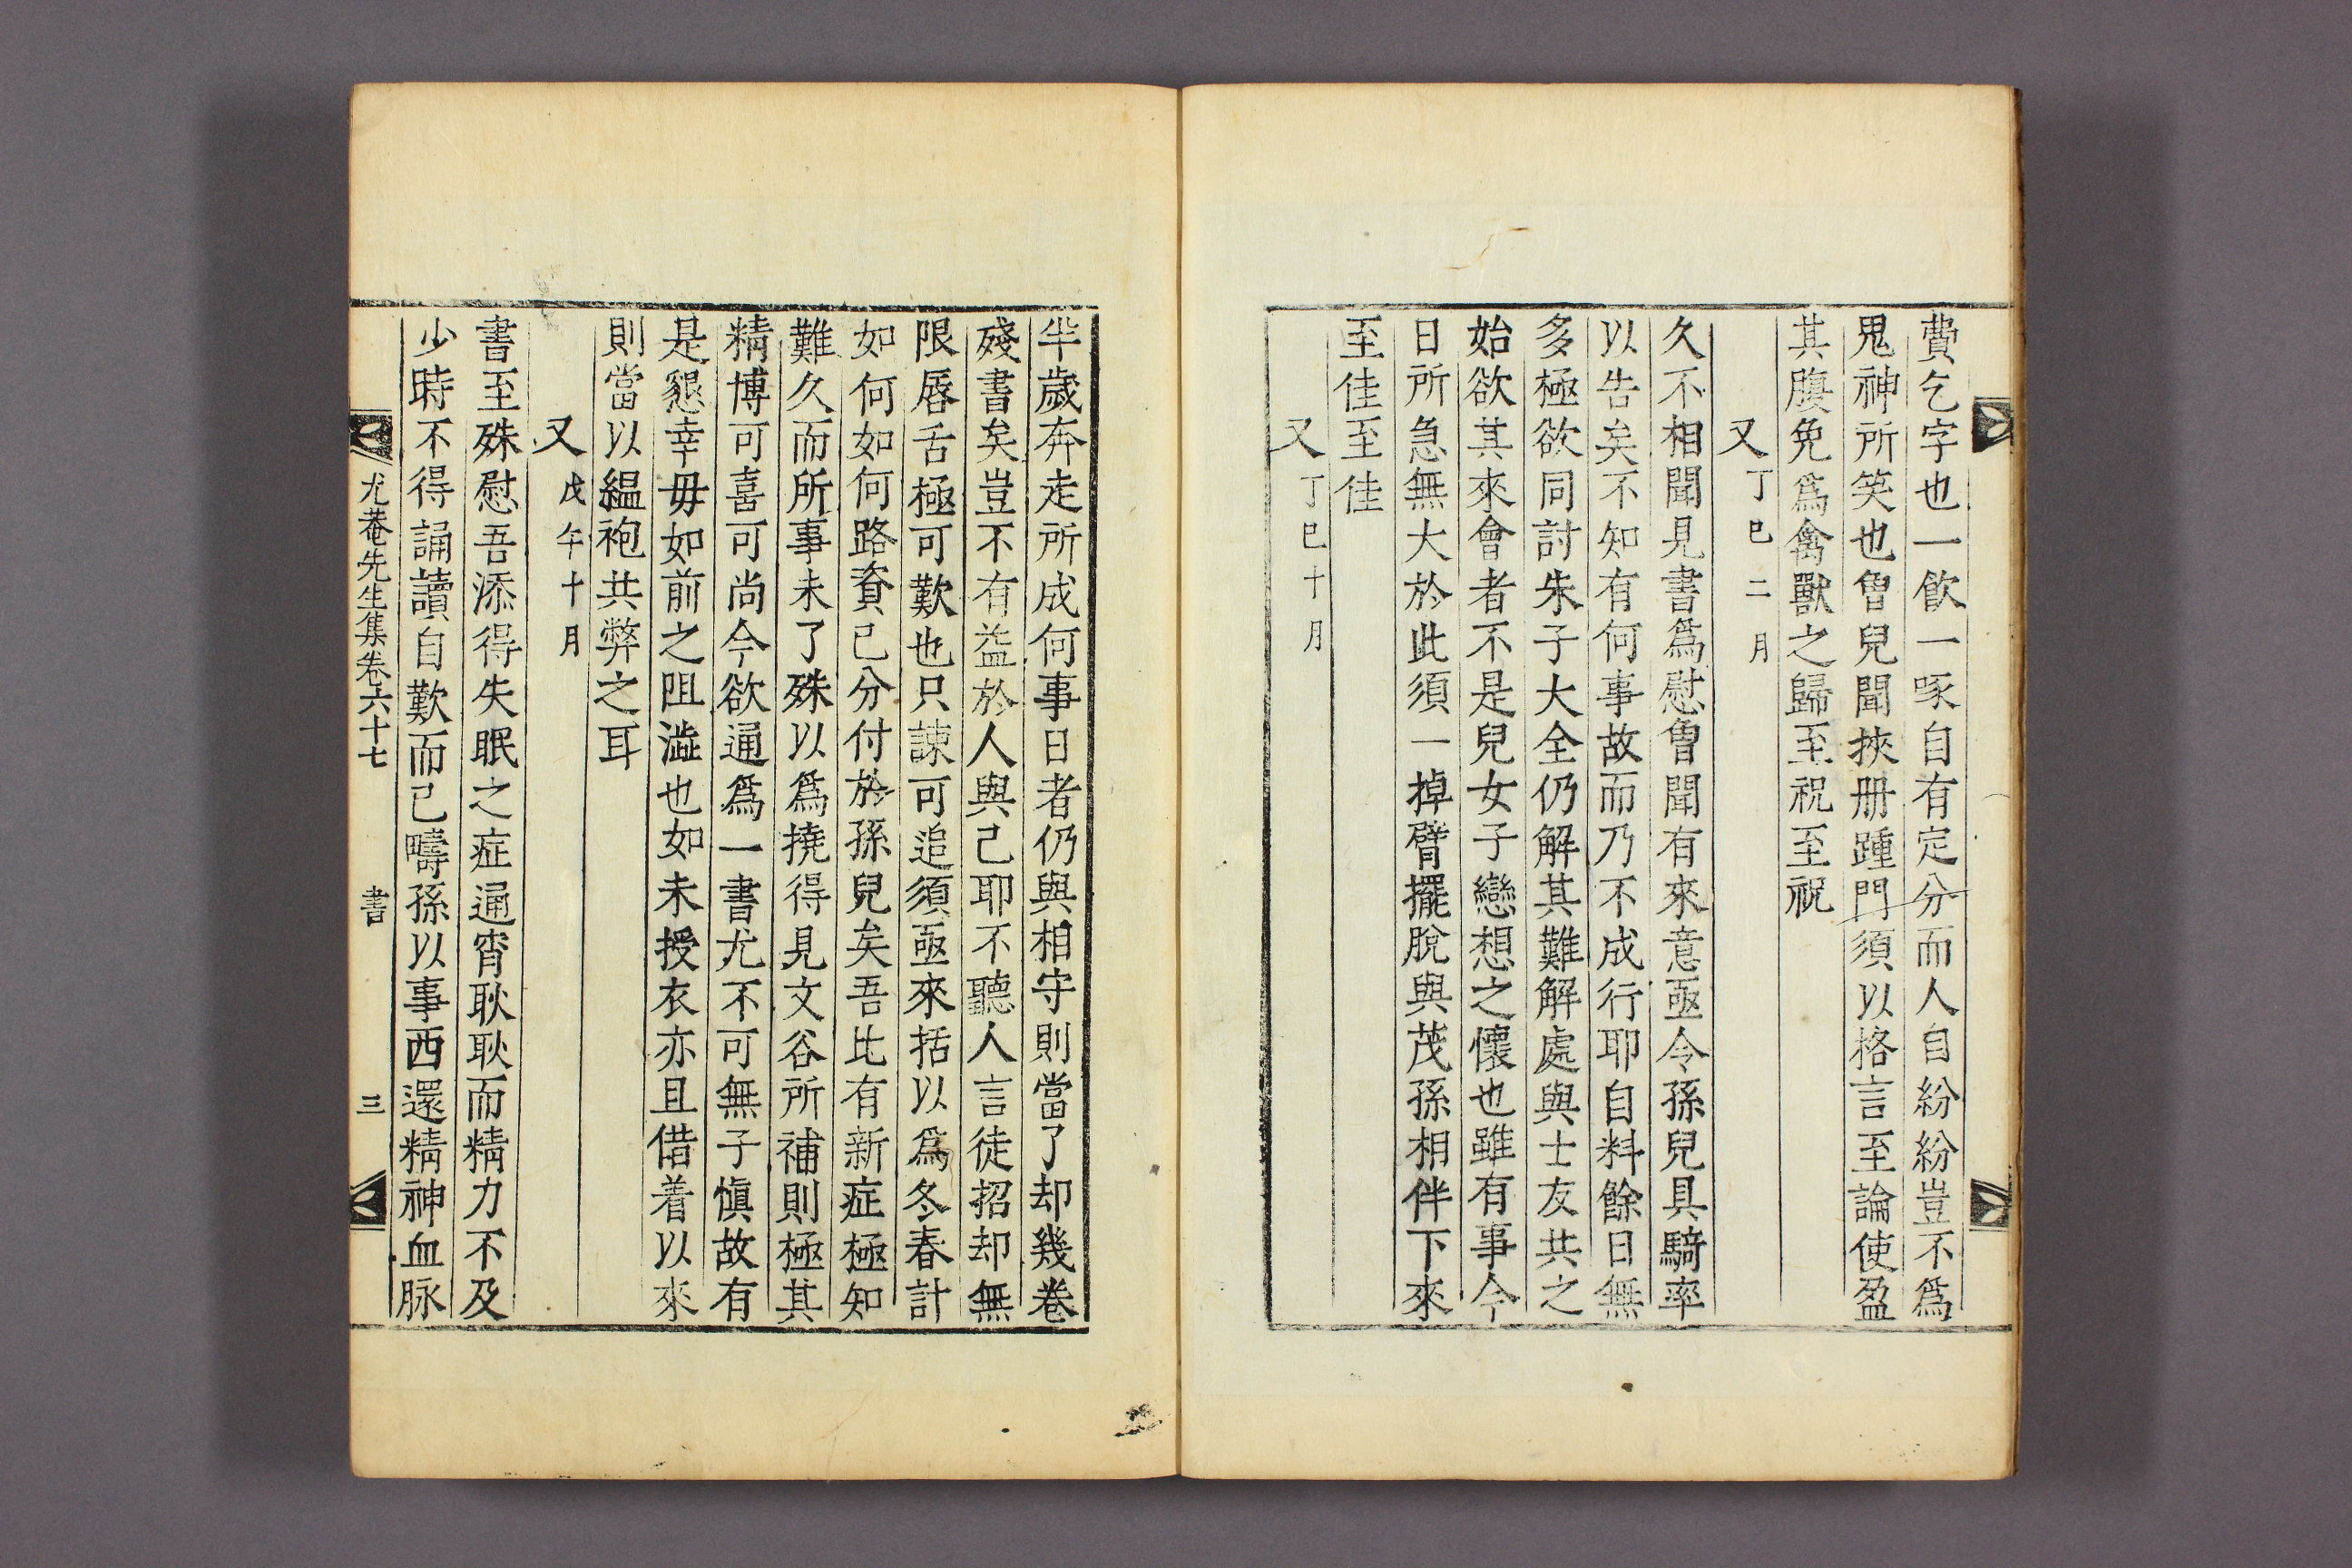 費乞字也一飮一啄自有定分而人自紛紛豈不爲
鬼神所笑也曾兒聞挾册踵門須以格言至論使盈
其腹免爲禽獸之歸至祝至祝
又丁巳二月
久不相聞見書爲慰曾聞有來意亟令孫兒具騎率
以告矣不知有何事故而乃不成行耶自料餘日無
多極欲同討朱子大全仍解其難解處與士友共之
始欲其來會者不是兒女子戀想之懷也雖有事今
日所急無大於此須一掉臂擺脫與茂孫相伴下來
至佳至佳
又丁巳十月
半歲奔走所成何事日者仍與相守則當了却幾卷
殘書矣豈不有益於人與己耶不聽人言徒招却無
限唇舌極可歎也只諫可追須亟來括以爲冬春計
如何如何路資已分付於孫兒矣吾比有新症極知
難久而所事未了殊以爲撓得見文谷所補則極其
精博可喜可尚今欲通爲一書尤不可無子愼故有
是懇幸毋如前之阻澁也如未授衣亦且借着以來
則當以縕袍共弊之耳
又戊午十月
書至殊慰吾添得失眠之症通宵耿耿而精力不及
少時不得誦讀自歎而已疇孫以事西還精神血脉
尤菴先生集卷六十七 書 三